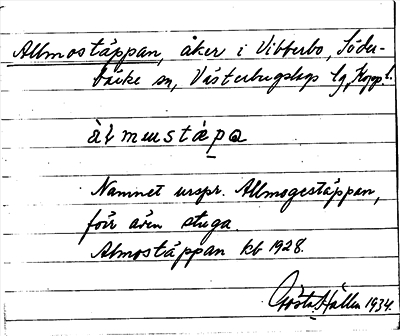 Allmostäppan, åker i Vibberbo, Söder-
bärke sn, Västerbergslags lg, Kopp. l.
àlmustäpa
Namnet urspr. Allmogestäppan,
förr även stuga.
Almostäppan kb 1928.
Gösta Hallén 1934.